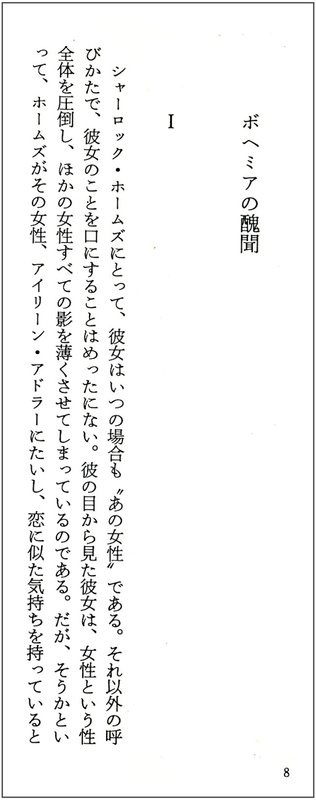 ボヘミアの醜聞
I
シャーロック・ホームズにとって、彼女はいつの場合も〝あの女性〟である。それ以外の呼
びかたで、彼女のことを口にすることはめったにない。彼の目から見た彼女は、女性という性
全体を圧倒し、ほかの女性すべての影を薄くさせてしまっているのである。だが、そうかとい
って、ホームズがその女性、アイリーン・アドラーにたいし、恋に似た気持ちを持っていると
8